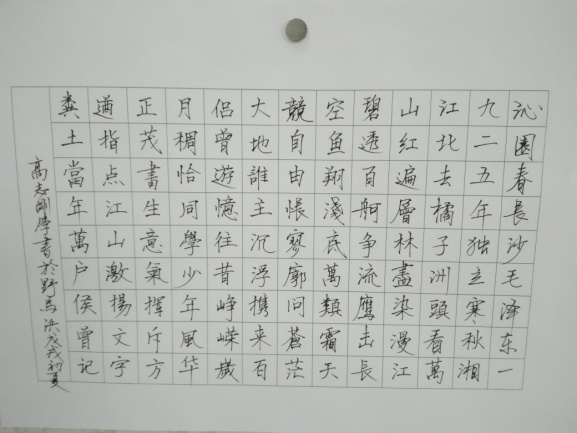 沁園春長沙毛泽东一
九二五年独立寒秋湘
江北去橘子洲頭看萬
山红遍層林盡染漫江
碧透百舸争流鹰击長
空鱼翔淺底萬類霜天
競自由悵寥廓问蒼茫
大地誰主沉浮携来百
侣曾遊憶往昔峥嵘歲
月稠恰同學少年風华
正茂書生意氣挥斥方
遒指点江山激揚文字
粪土當年萬户侯曾记
高志剛學書於野馬浜戊戌初夏